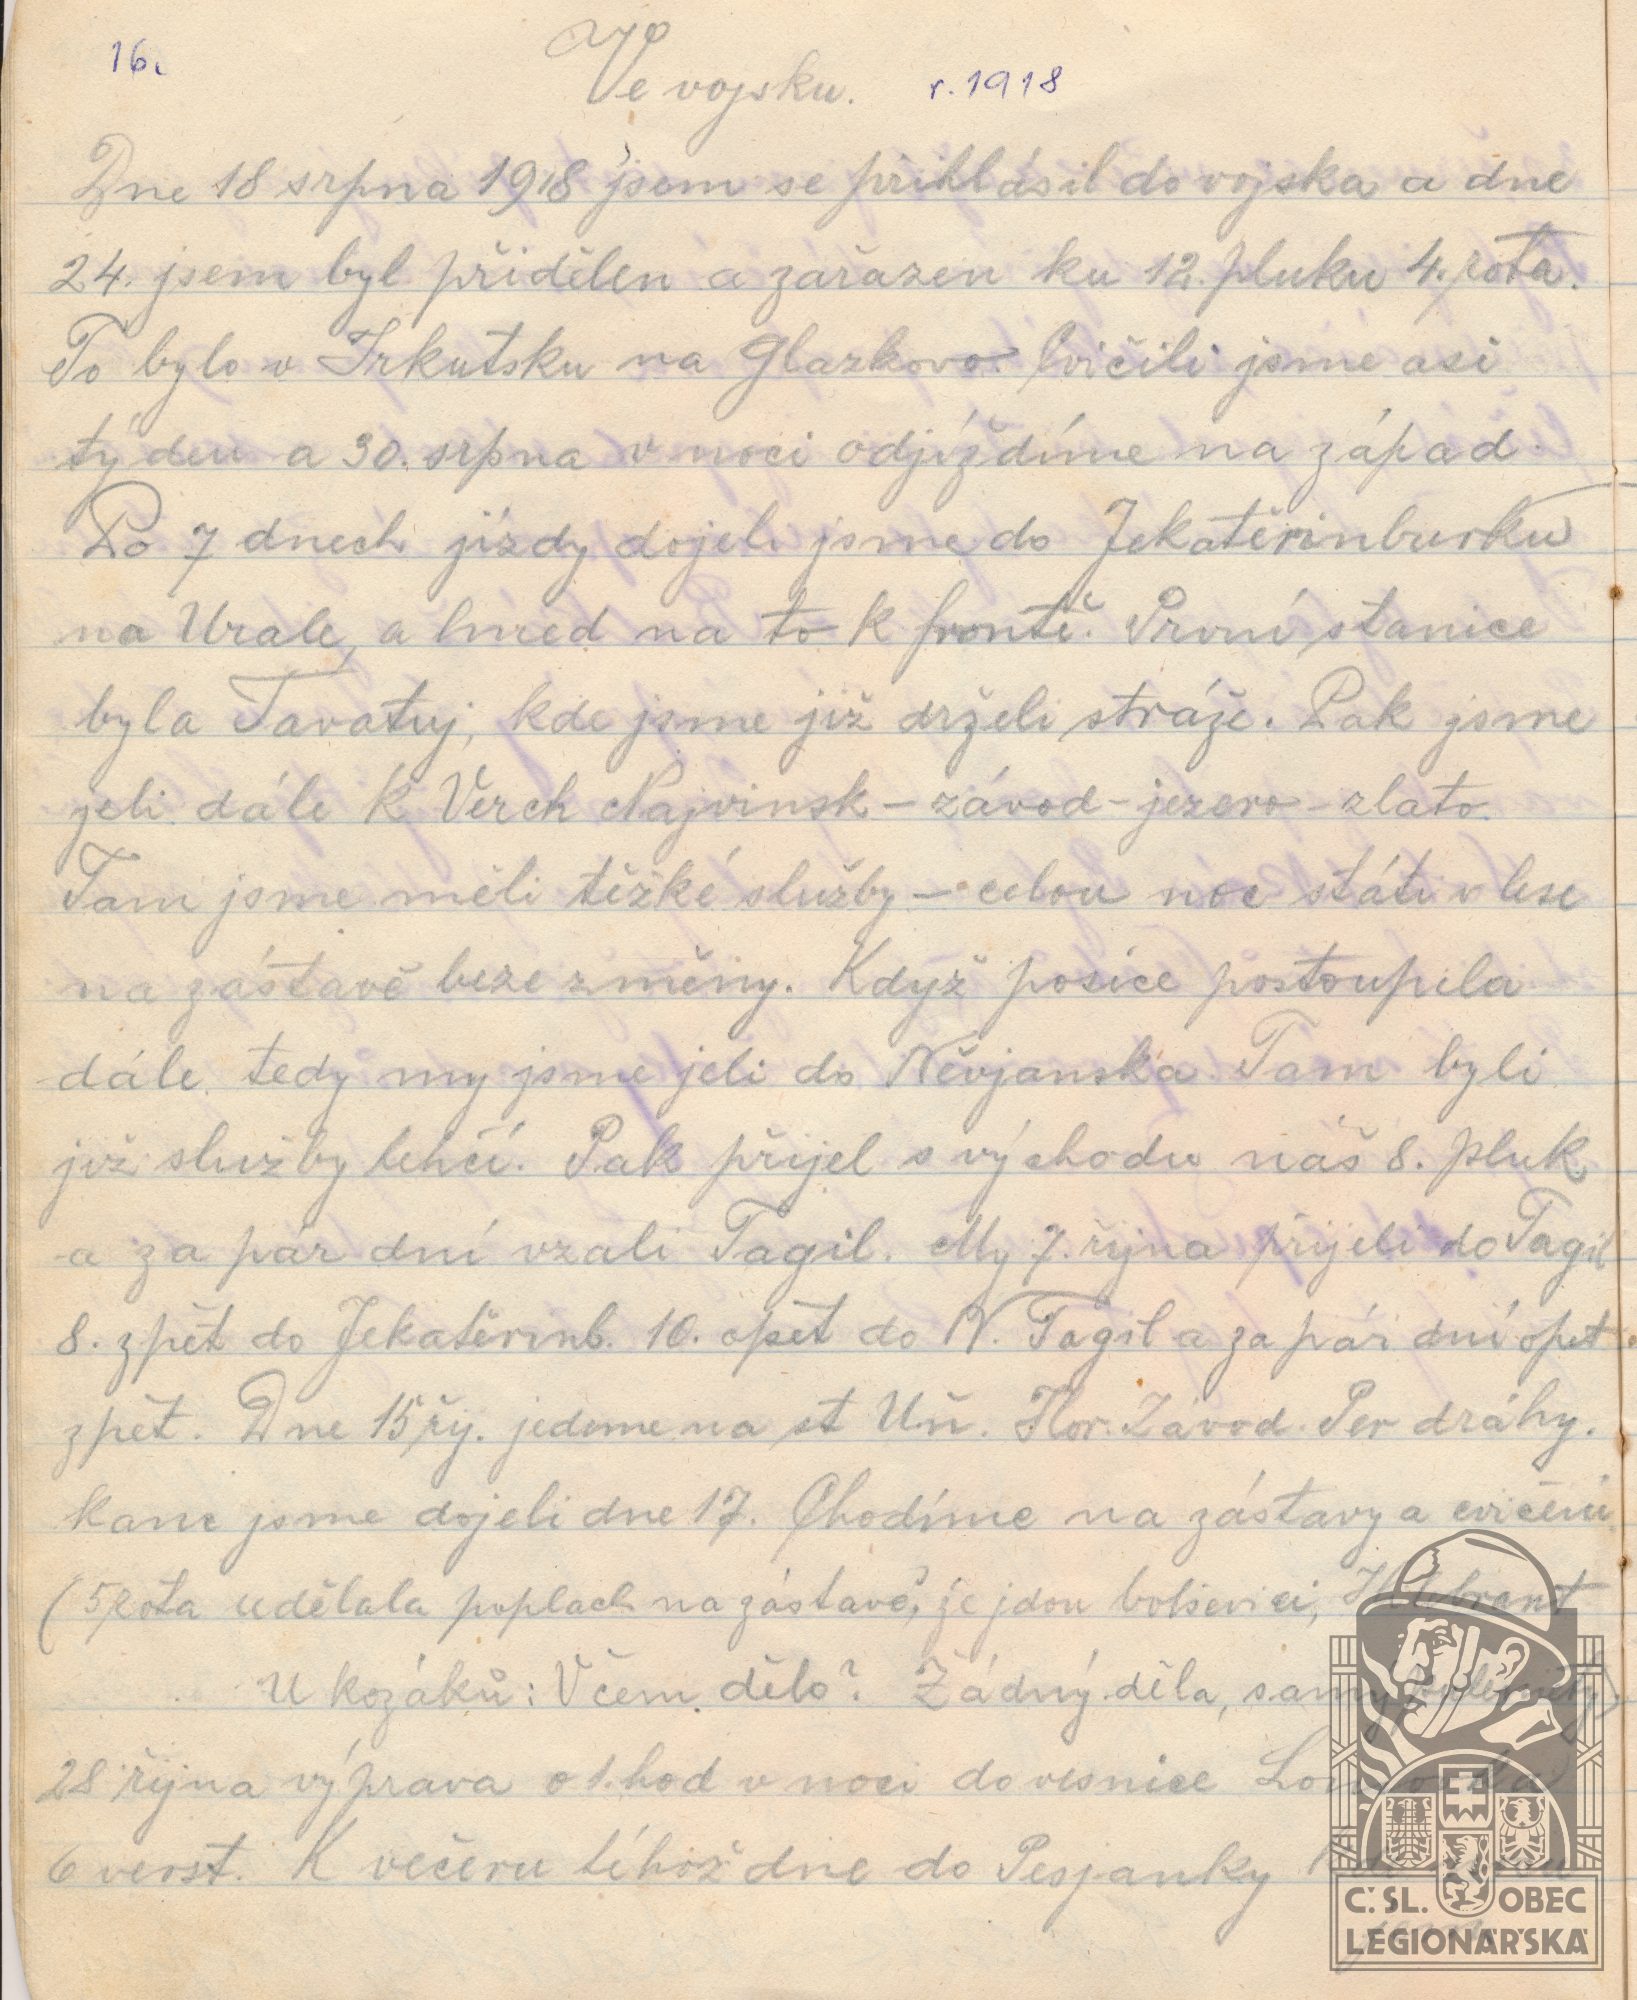 16.
Ve vojsku. r. 1918
Dne 18 srpna 1918 jsem se přihlásil do vojska a dne
24. jsem byl přidělen a zařazen ku 12. pluku 4. rota.
To bylo v Irkutsku na Glazkovo. Cvičili jsme asi
týden a 30. srpna v noci odjíždíme na západ.
Po 7 dnech jízdy dojeli jsme do Jekatěrinburku
na Urale, a hned na to k frontě. První stanice
byla Tavatuj, kde jsme již drželi stráže. Pak jsme
jeli dále k Verch Najvinsk – závod – jezero – zlato.
Tam jsme měli těžké služby – celou noc státi v lese
na zástavě beze změny. Když posice postoupila
dále tedy my jsme jeli do Něvjanska. Tam byli
již služby lehčí. Pak přijel s východu náš 8. pluk
a za pár dní vzali Tagil. My 7. října přijeli do Tagil
8. zpět do Jekatěrinb. 10. opět do N. Tagil a za pár dní opět
zpět. Dne 15 říj. jedeme na st Uň. Hor. Závod. Per dráhy.
kam jsme dojeli dne 17. Chodíme na zástavy a cvičení
(5 rota udělala poplach na zástavě, je jdou bolševici,
U kozáků: V čem dělo? Žádný děla, samý
28 října výprava o 1. hod v noci do vesnice
6 verst. K večeru téhož dne do Pesjanky
Č. SL. OBEC
LEGIONÁŘSKÁ